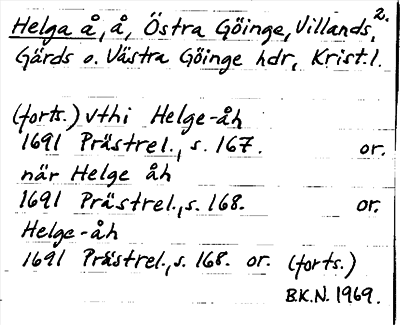 2.
Helga å, å, Östra Göinge, Villands,
Gärds o. Västra Göinge hdr, Krist. l.
(forts.) vthi Helge-åh
1691 Prästrel., s. 167. or.
när Helge åh
1691 Prästrel., s. 168. or.
Helge-åh
1691 Prästrel., s. 168. or. (forts.)
B.K.N. 1969.